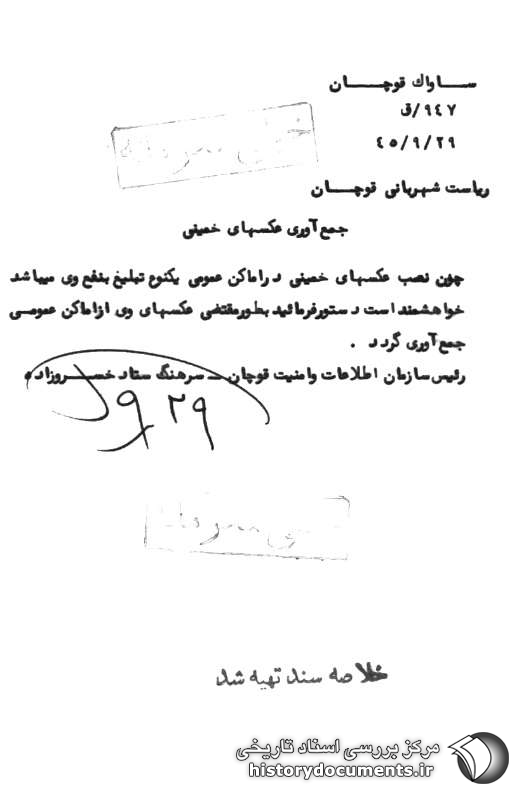 ســـاواك قوچـــان
۹٤۷/ق
٤٥/۹/۲۹
خیلی محرمانه
ریاست شهربانی قوچـــان
جمع آوری عکسهای خمینی
چون نصب عکسهای خمینی در اماکن عمومی یکنوع تبلیغ بنفع وی میباشد
خواهشمند است دستور فرمائید بطور مقتضی عکسهای وی از اماکن عمومـی
جمع آوری گردد .
رئیس سازمان اطلاعات و امنیت قوچان ــ سرهنگ ستاد خســـروزاده
۲۹ر۹
خیلی محرمانه
خلاصه سند تهیه شد
مرکز بررسی اسناد تاریخی
historydocuments.ir